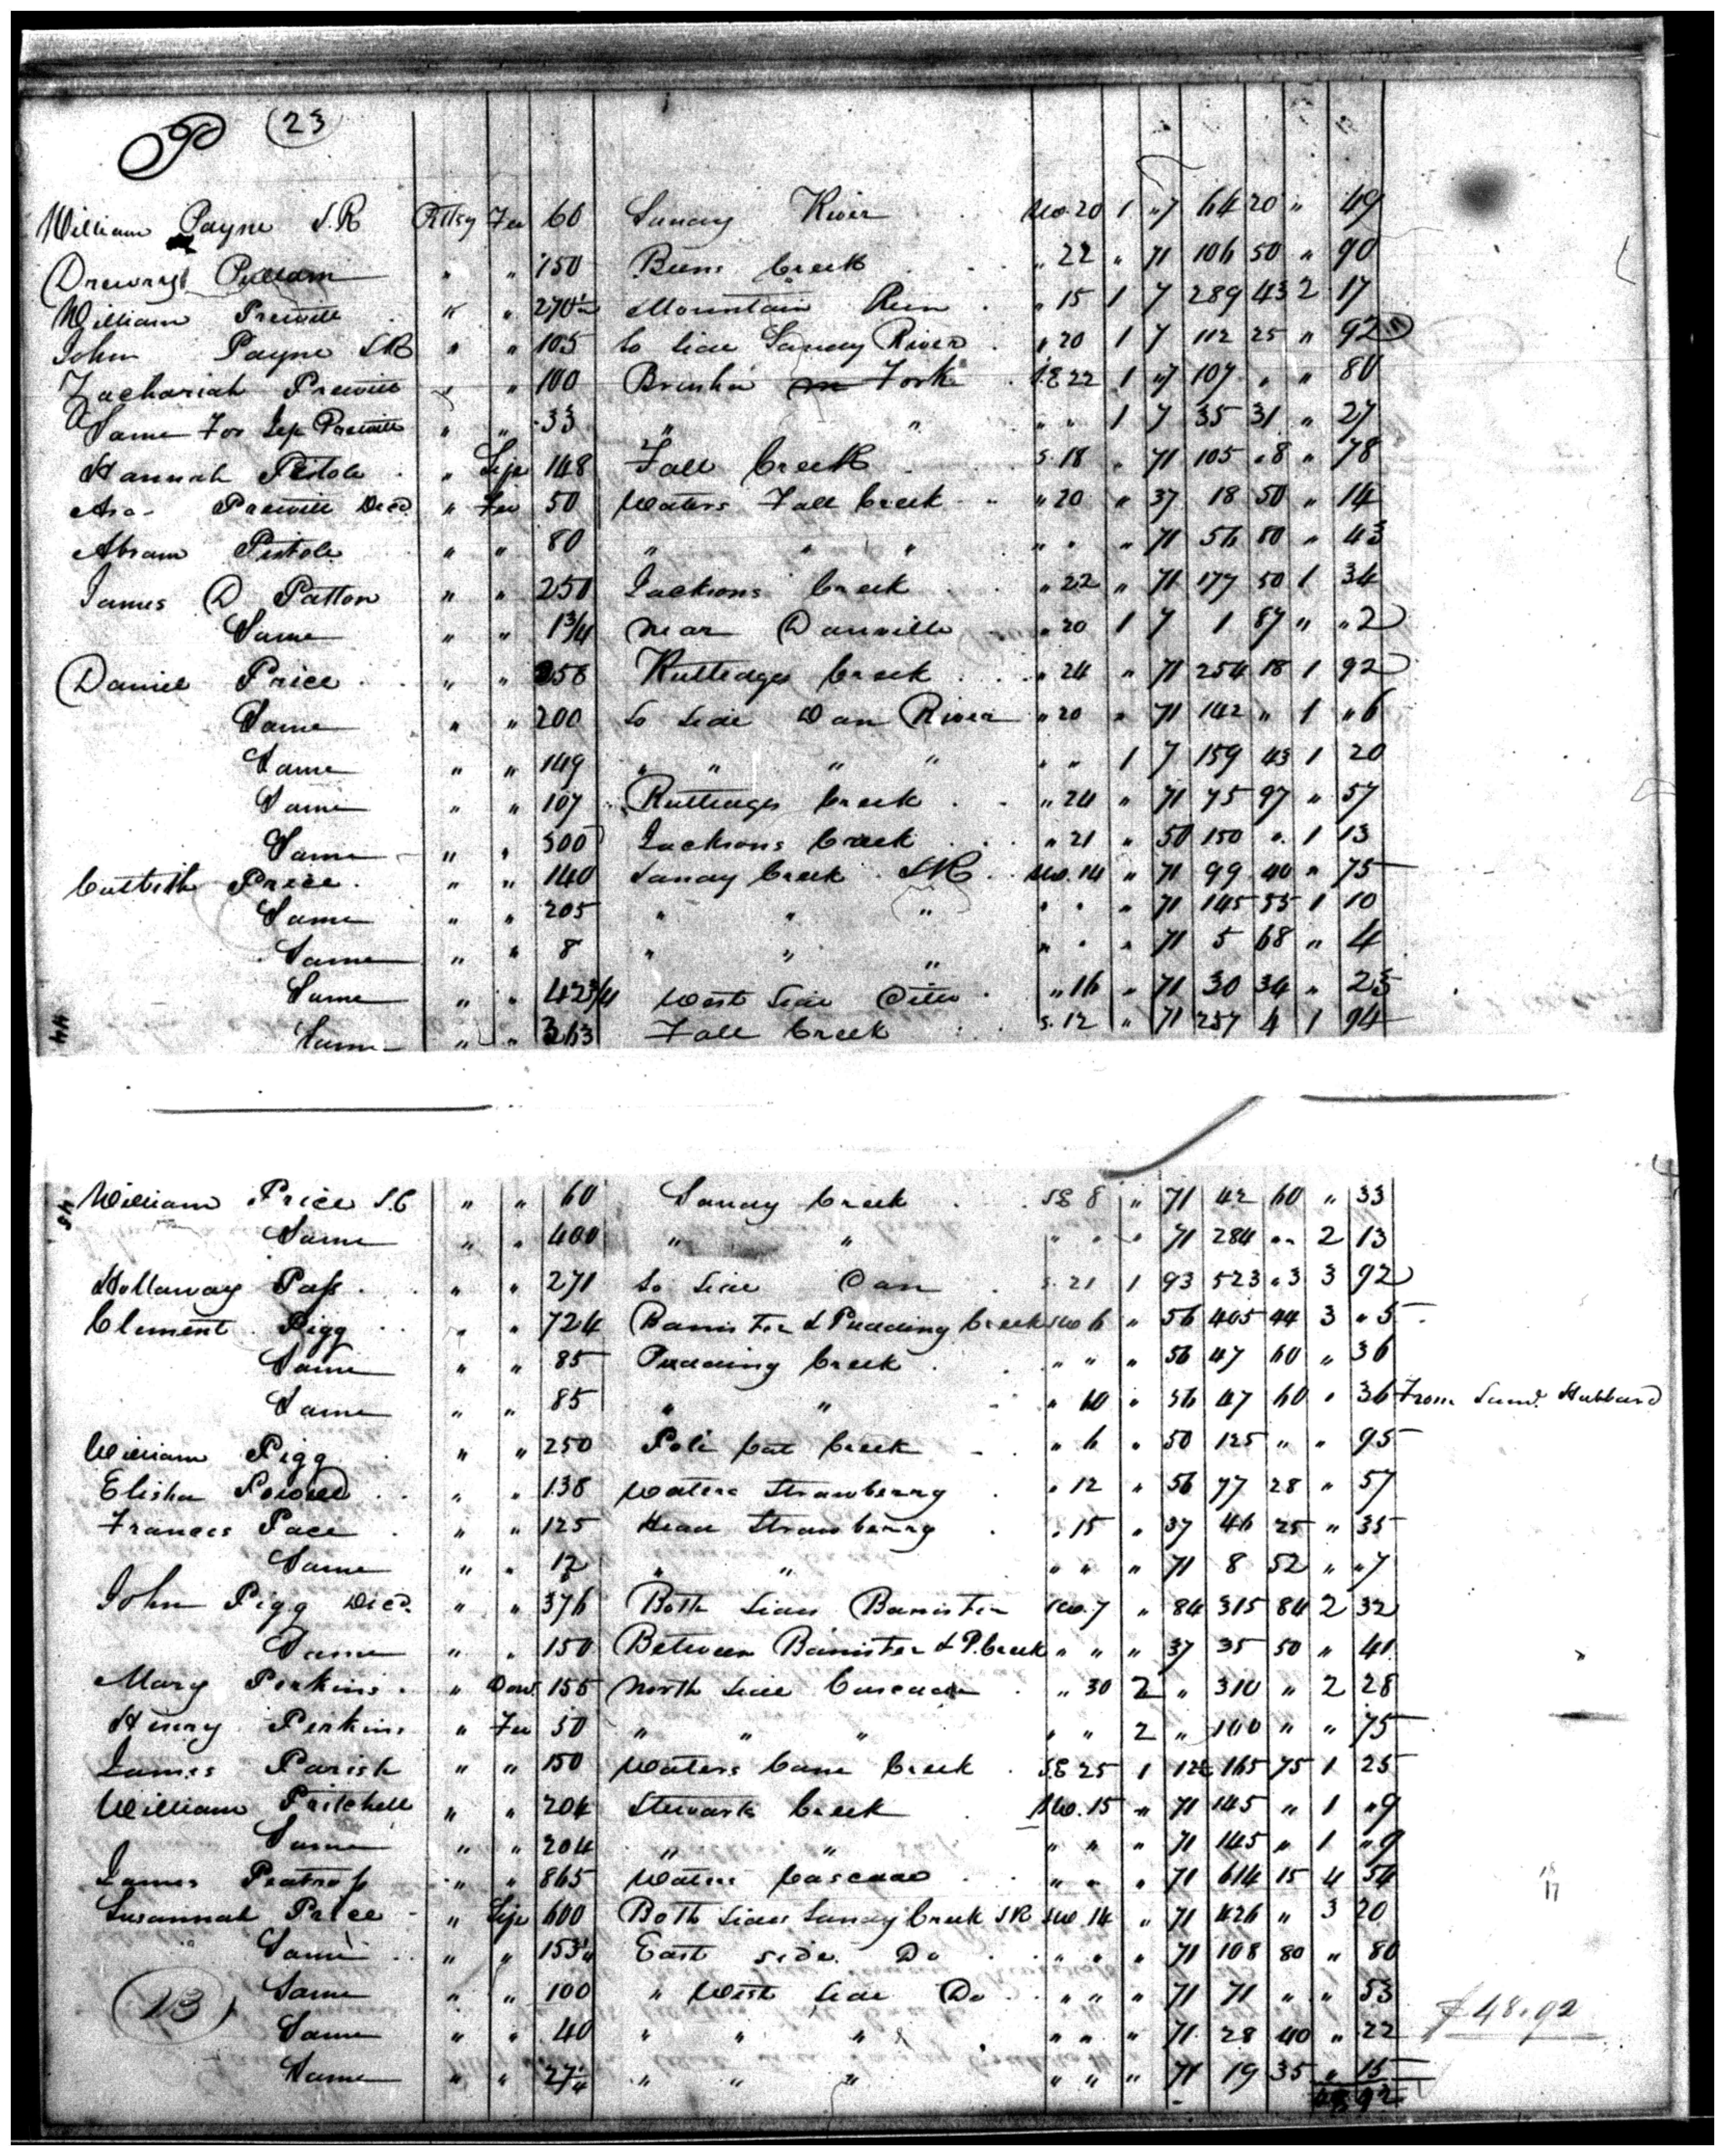 P (23)
William Payne S.R Pittsy Fee 60 Sandy River SW. 20 1 "7 64 20 " 49
Drewry Pulliam " " 150 Beens Creek " 22 " 71 106 50 " 90
William Prewitt " " 270½ Mountain Run " 15 1 7 289 43 2 17
John Payne SR " " 105 So Side Sandy River " 20 1 7 112 25 " 92
Zachariah Prewitt " " 100 Fork S.E 22 1 "7 107 " " 80
Same For Prewitt " " 33 " " " " 1 7 35 31 " 27
Hannah Pistole " Life 148 Fall Creek S. 18 " 71 105 "8 " 78
Asa Prewitt Decd. " Fee 50 Waters Fall Creek " 20 " 37 18 50 " 14
Abram Pistole " " 80 " " " " " " 71 56 80 " 43
James D Patton " " 250 Jacksons Creek " 22 " 71 177 50 1 34
Same " " 1¾ Near Danville " 20 1 7 1 87 " "2
Daniel Price " " 358 Rutledges Creek " 24 " 71 254 18 1 92
Same " " 200 So Side Dan River " 20 " 71 142 " 1 "6
Same " " 149 " " " " " " 1 7 159 43 1 20
Same " " 107 Rutledges Creek " 24 " 71 75 97 " 57
Same " " 300 Jacksons Creek " 21 " 50 150 " 1 13
Cutbirth Price " " 140 Sandy Creek SR SW. 14 " 71 99 40 " 75
Same " " 205 " " " " " " 71 145 55 1 10
Same " " 8 " " " " " " 71 5 68 " 4
Same " " 42¾ West Side Ditto " 16 " 71 30 34 " 23
44 Same " " 363 Fall Creek S. 12 " 71 257 4 1 94
45 William Price S.C " " 60 Sandy Creek SE 8 " 71 42 60 " 33
Same " " 400 " " " " " 71 284 "" 2 13
Hollaway Pass " " 271 So Side Dan S. 21 1 93 523 "3 3 92
Clement Pigg " " 724 Banister & Pudding Creek SW 6 " 56 405 44 3 "5
Same " " 85 Pudding Creek " " " 56 47 60 " 36
Same " " 85 " " " 10 " 56 47 60 " 36 From Saml. Hubbard
William Pigg " " 250 Pole Cat Creek " 6 " 50 125 " " 95
Elisha Powell " " 138 Waters Strawberry " 12 " 56 77 28 " 57
Frances Pace " " 125 Head Strawberry " 15 " 37 46 25 " 35
Same " " 12 " " " " " 71 8 52 " "7
John Pigg Decd. " " 376 Both Sides Banister SW. 7 " 84 315 84 2 32
Same " " 150 Between Banister & P. Creek " " " 37 35 50 " 41
Mary Perkins " Dow 155 North Side Cascade " 30 2 " 310 " 2 28
Henry Perkins " Fee 50 " " " " " 2 " 100 " " 75
James Parish " " 150 Waters Cane Creek SE 25 1 12½ 165 75 1 25
William Pritchell " " 204 Stewarts Creek SW. 15 " 71 145 " 1 "9
Same " " 204 " " " " " 71 145 " 1 "9
James Peatross " " 865 Waters Cascade " " " 71 614 15 4 54
Susannah Price " Life 600 Both Sides Sandy Creek SR SW. 14 " 71 426 " 3 20
Same " " 153¼ East Side Do " " " 71 108 80 " 80
(23) Same " " 100 " West Side Do " " " 71 71 " " 53
Same " " 40 " " " " " " 71 28 40 " 22
Same " " 27¼ " " " " " " 71 19 35 " 15
48 92
$48.92